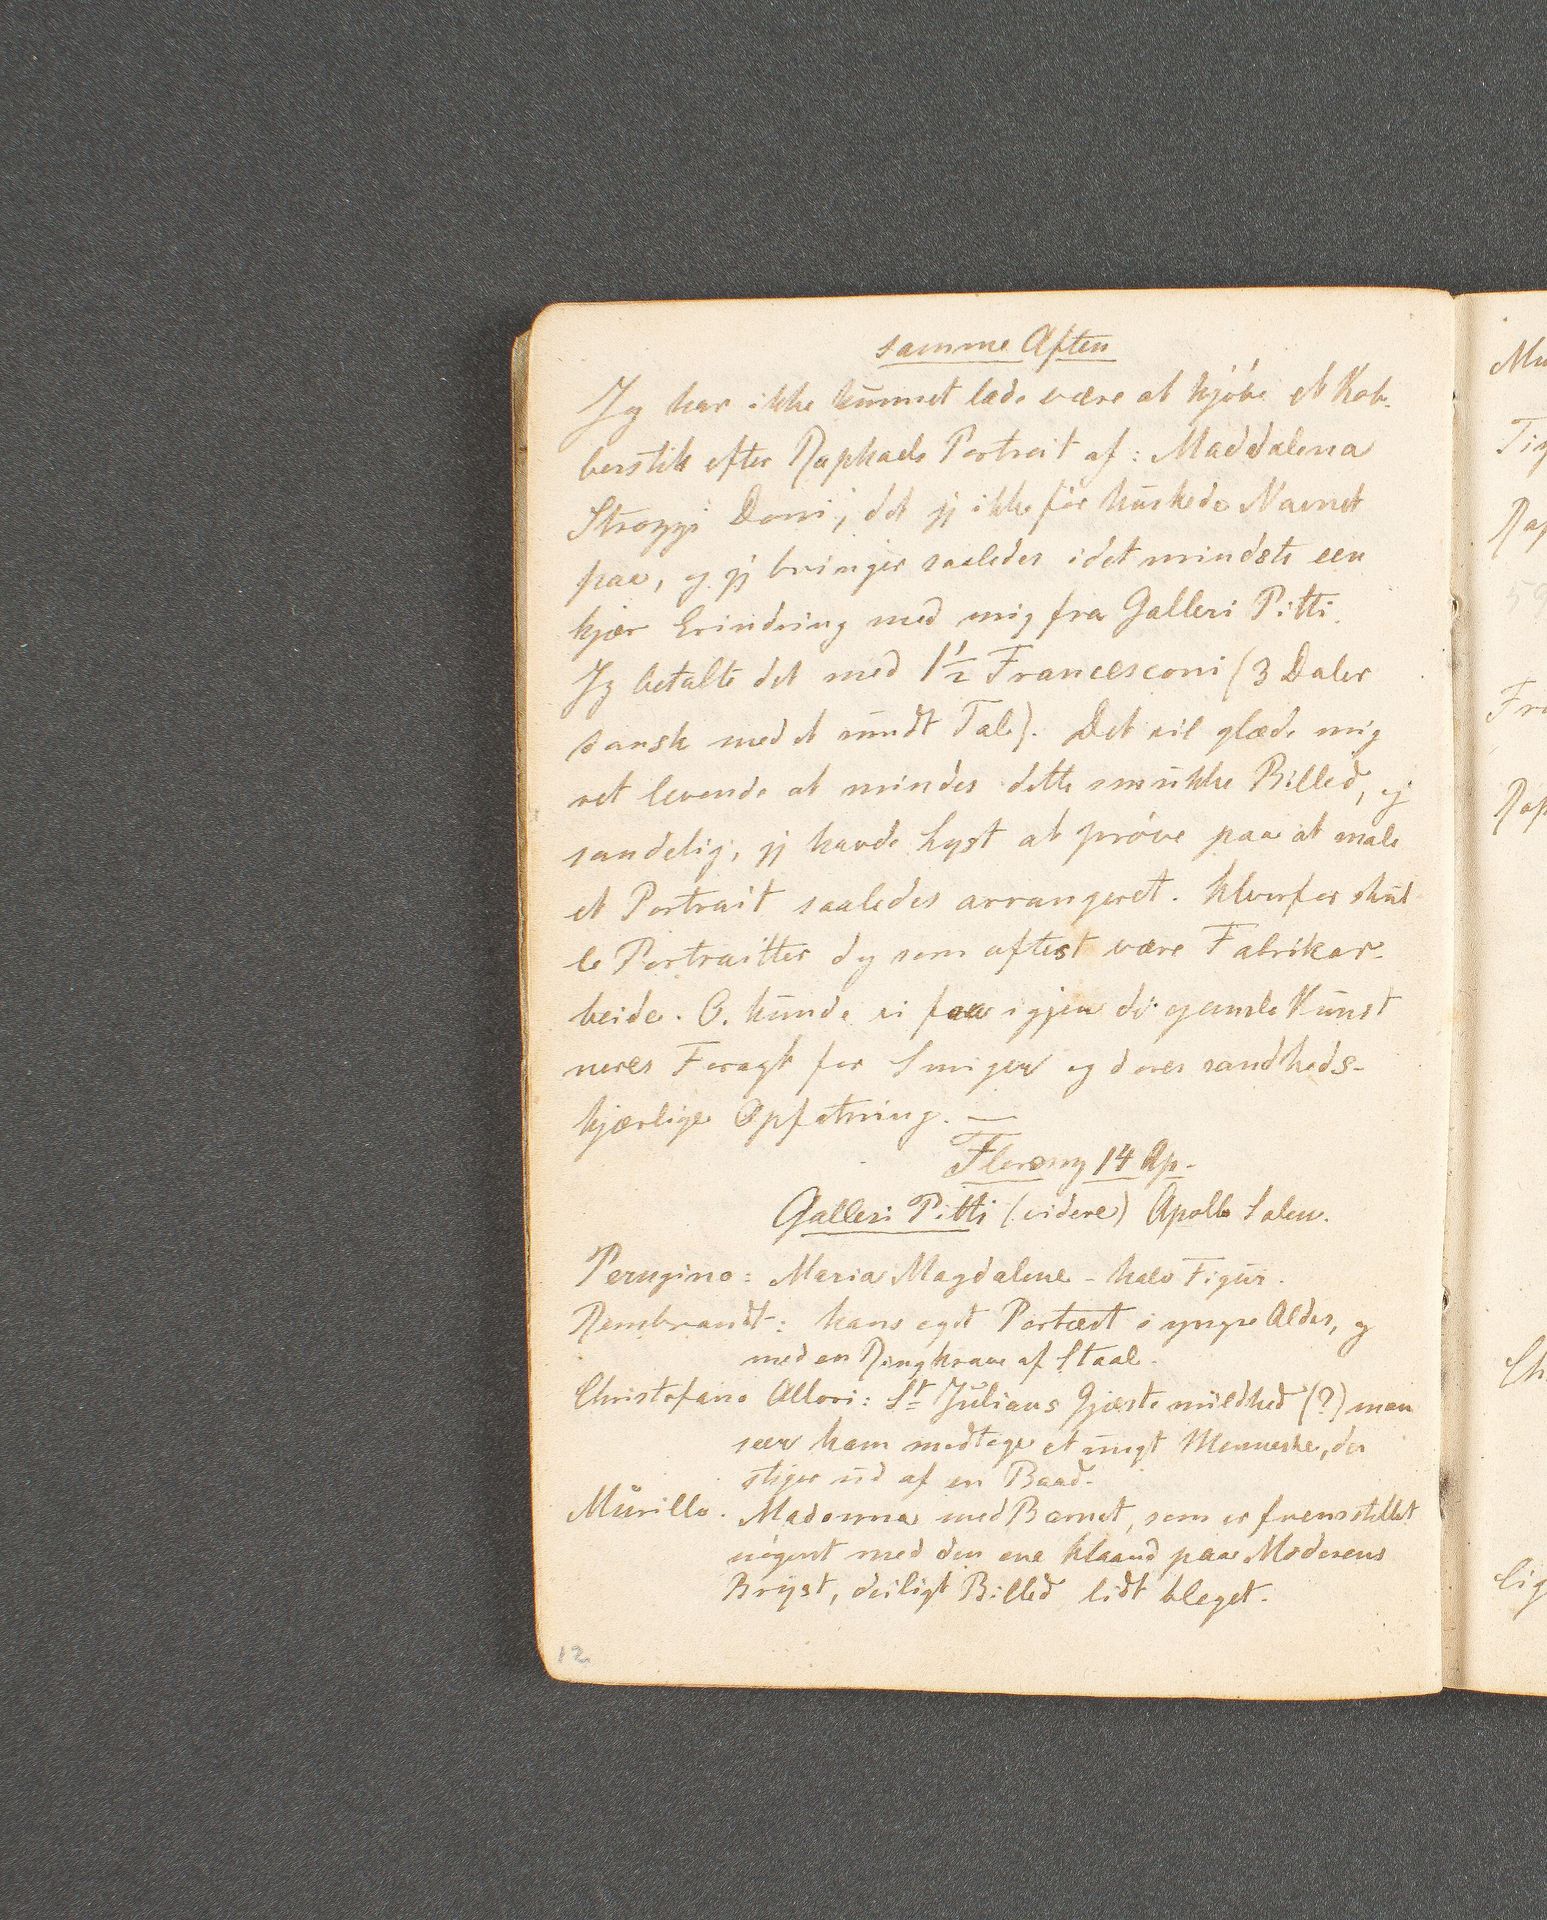 samme Aften
Jeg har ikke kunnet lade være at kjøbe et Kob-
berstik efter Raphaels Portrait af: Maddalena
Strozzi Doni, det jeg ikke før huskede Navnet
paa, og jeg bringer saaledes idet mindste een
kjær Erindring med mig fra Galleri Pitti.
Jeg betalte det med 1½ Francesconi (3 Daler
dansk med et rundt Tal). Det vil glæde mig
ret levende at mindes dette smukke Billed, og
sandelig, jeg havde Lyst at prøve paa at male
et Portrait saaledes arrangeret. Hvorfor skul
le Portraitter dog som oftest være Fabrikar-
beide. O, kunde vi faa igjen de gamle Kunst
neres Foragt for Smiger og deres sandheds-
kjærlige Opfatning. —
Florenz 14 Ap.
Galleri Pitti (videre) Apollo Salen.
Perugino: Maria Magdalene - halv Figur.
Rembrandt: hans eget Portræt i yngre Alder, og
med en Ringkrave af Staal.
Christofano Allori: St Julians Gjæstemildhed (?) man
seer ham modtage et ungt Menneske, der
stiger ud af en Baad.
Murillo. Madonna med Barnet, som er fremstillet
nøgent med den ene Haand paa Moderens
Bryst, deiligt Billed lidt bleget.
12
Mu
Ti
Rap
59
Fra
Rap
Ch
lig